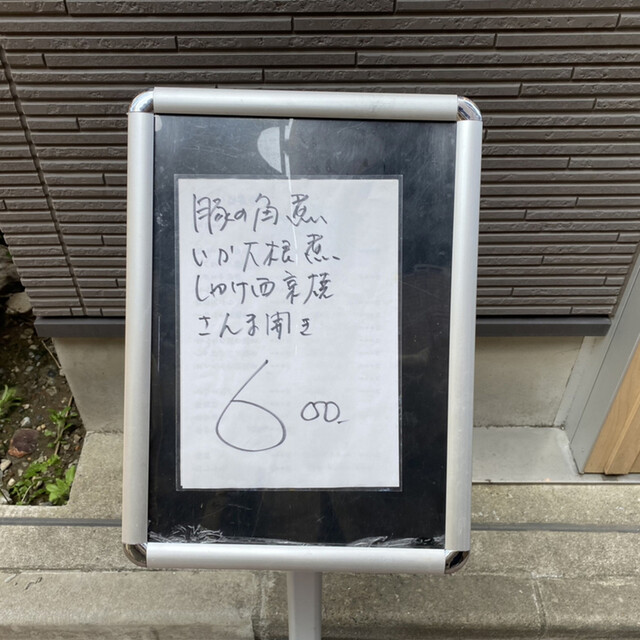 豚の角煮
いか大根煮
しゃけ西京焼
さんま開き
600.